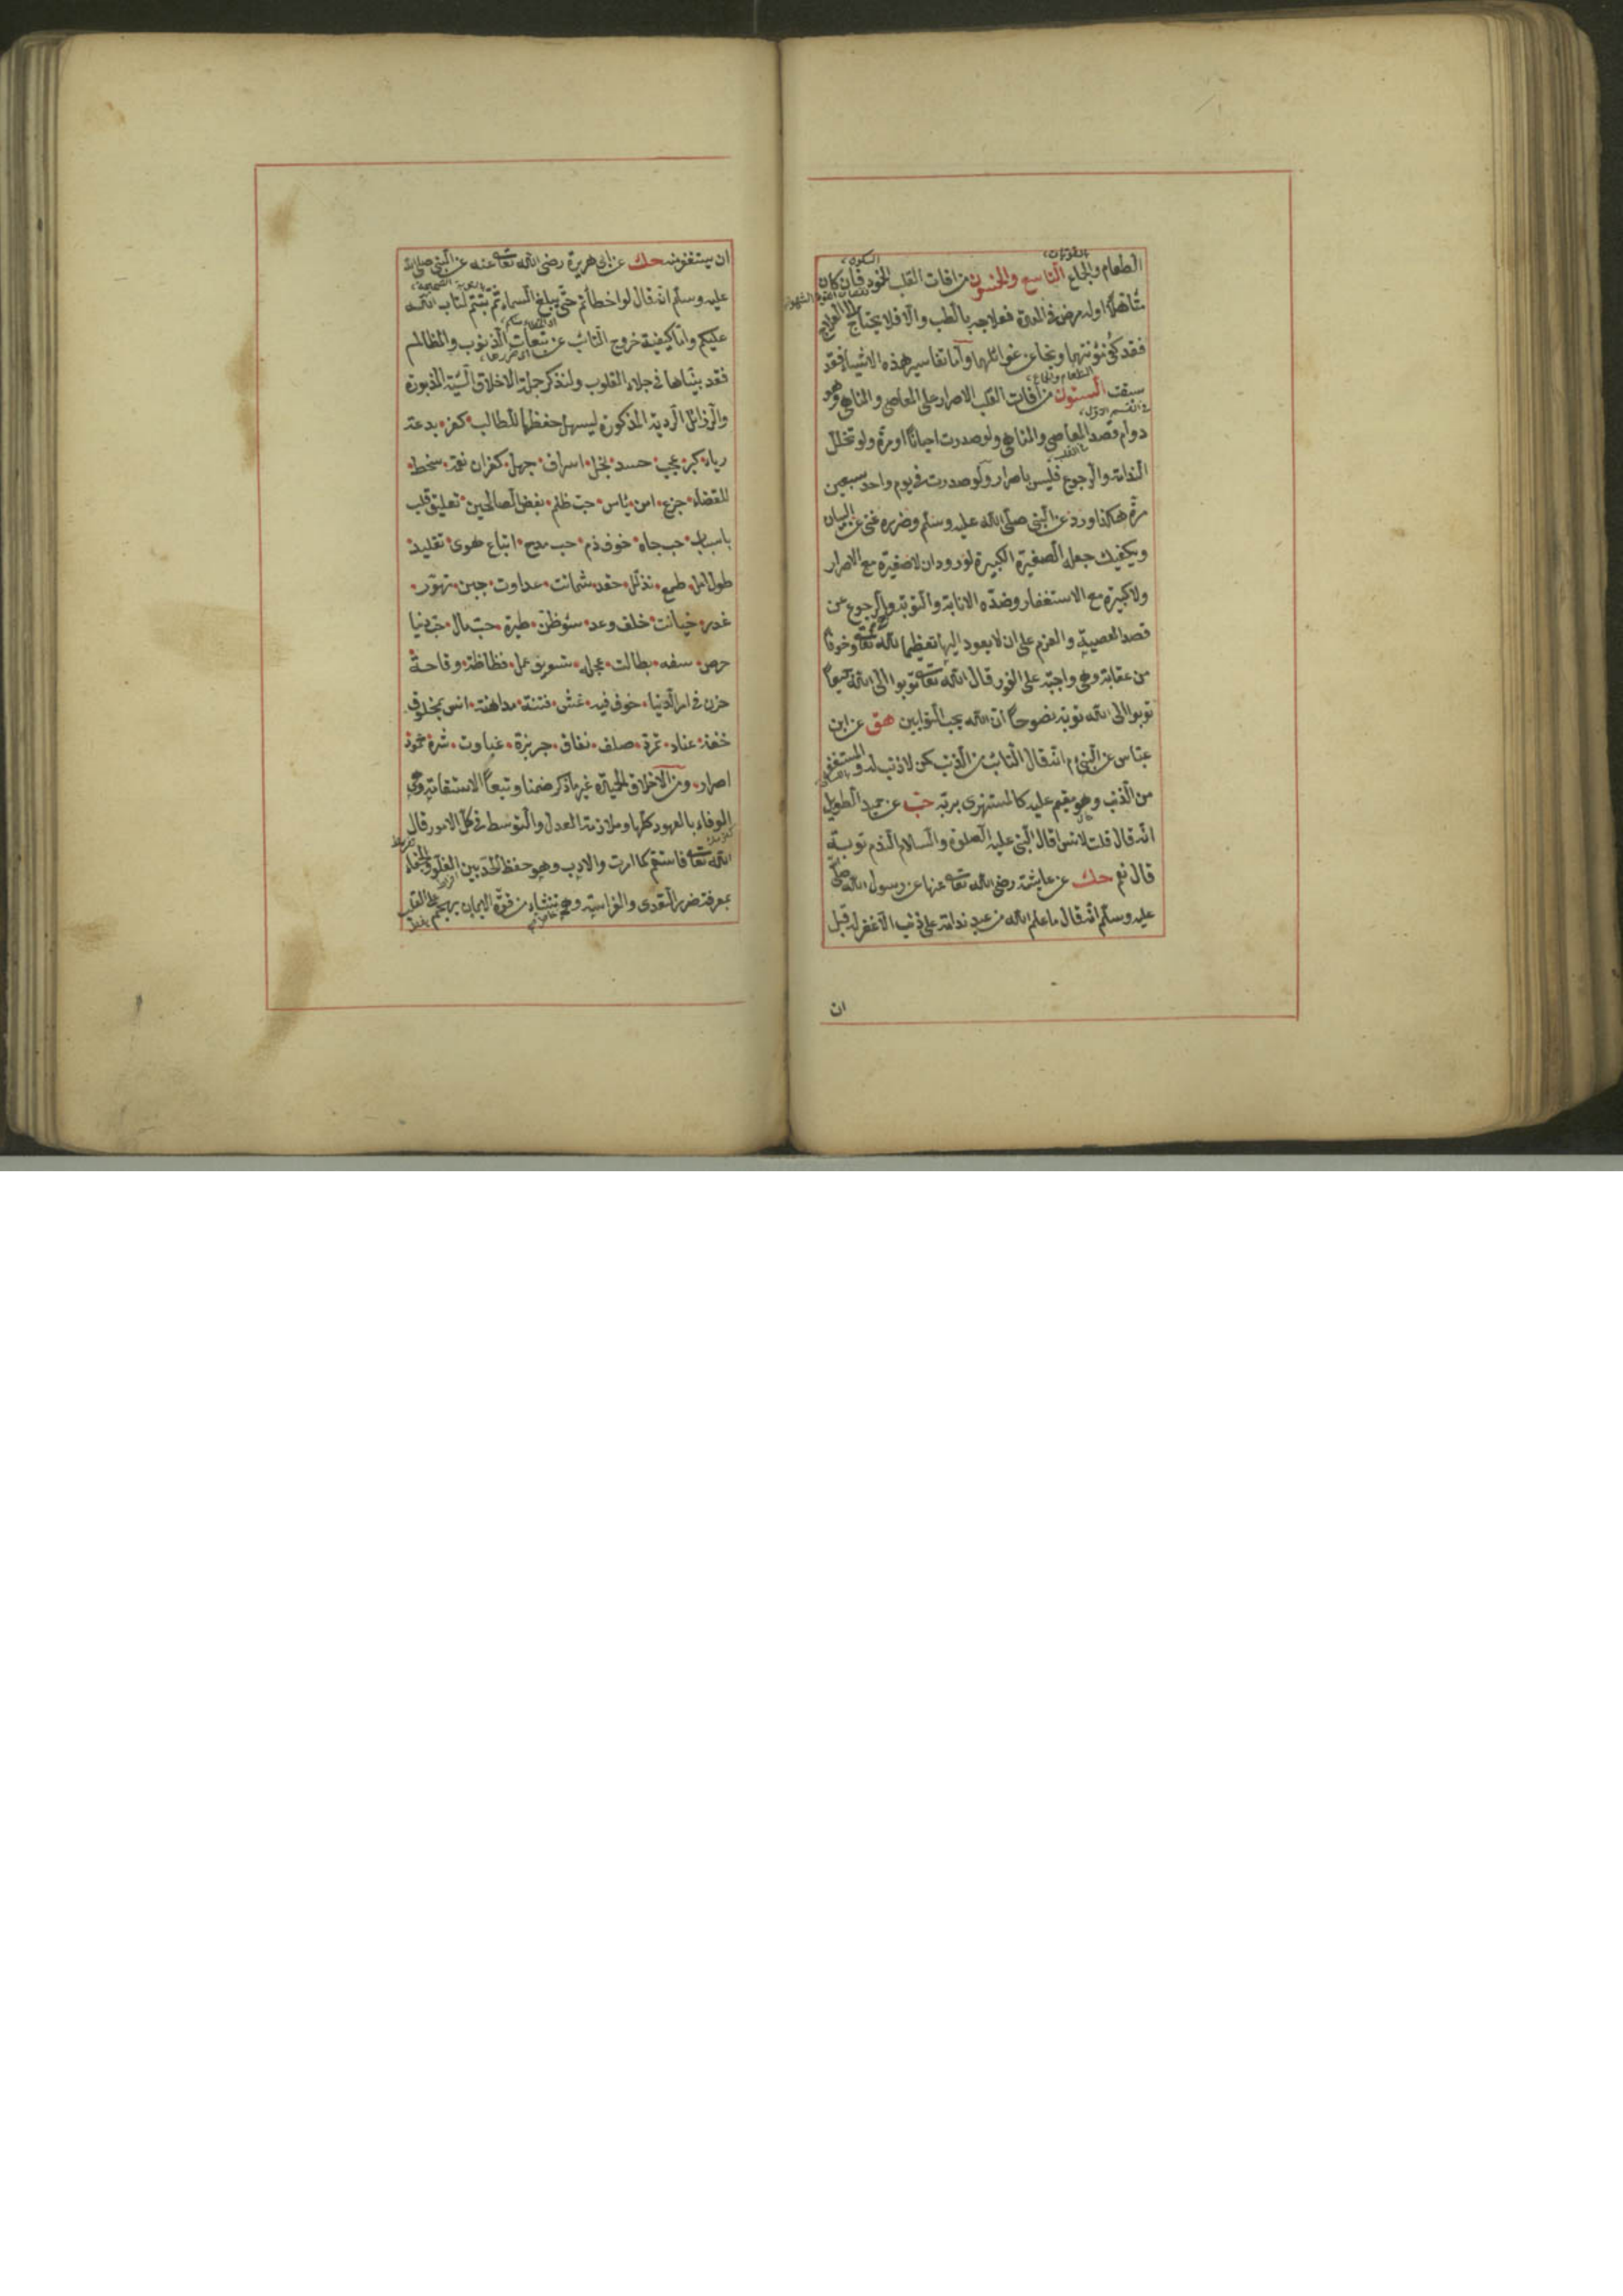 الطعام والجماع التاسع والخمسون من افات القلب الخمود فان كان
متأهلا اوله مرض في المعدة فعلاجه بالطب والا فلا يحتاج الى العلاج
فقد كفى مؤنتهما ونجا عن غوائلهما وأما تفاسير هذه الاشياء فقد
سبقت الستون من افات القلب الاصرار على المعاصي والمناهي وهو
دوام قصد المعاصي والمناهي ولو صدرت احيانا او مرة ولو تخلل
الندامة والرجوع فليس باصرار ولو صدرت في يوم واحد سبعين
مرة هكذا ورد عن النبي صلى الله عليه وسلم وضرره غني عن البيان
ويكفيك جعله الصغيرة الكبيرة لورود ان لا صغيرة مع الاصرار
ولا كبيرة مع الاستغفار وضده الانابة والتوبة والرجوع عن
قصد المعصية والعزم على ان لا يعود اليها تعظيما لله تعالى وخوفا
من عقابه وهي واجبة على الفور قال الله تعالى توبوا الى الله جميعا
توبوا الى الله توبة نصوحا ان الله يحب التوابين هق عن ابن
عباس عن النبي م انه قال التائب من الذنب كمن لا ذنب له والمستغفر
من الذنب وهو مقيم عليه كالمستهزى بربه حب عن حميد الطويل
انه قال قلت لانس اقال النبي عليه الصلوة والسلام الندم توبة
قال نعم حك عن عايشة رضى الله تعالى عنها عن رسول الله صلى
عليه وسلم انه قال ما علم الله من عبد ندامة على ذنب الا غفر له قبل
ان
ان يستغفر منه حك عن ابى هريرة رضى الله تعالى عنه عن النبي صلى الله
عليه وسلم انه قال لو اخطأتم حتى يبلغ السماء ثم تبتم لتاب الله
عليكم واما كيفية خروج التائب عن تبعات الذنوب والمظالم
فقد بيناها في جلاء القلوب ولنذكر جملة الاخلاق السيئة المذبورة
والرذائل الردية المذكورة ليسهل حفظها للطالب كفر بدعة
رياء كبر عجب حسد بخل اسراف جهل كفران نعمة سخط
للقضاء جزع امن يأس حب ظلم بغض الصالحين تعليق قلب
باسباب حب جاه خوف ذم حب مدح اتباع هوى تقليد
طول امل طمع تذلل حقد شماتت عداوت جبن تهور
غدر خيانت خلف وعد سؤ ظن طيرة حب مال حب دنيا
حرص سفه بطالت عجله تسويف عمل فظاظة وقاحة
حزن في امر الدنيا خوف فيه غش فتنة مداهنة انس بمخلوق
خفة عناد تمرد صلف نفاق جربزة غباوت شره خمود
اصرار ومن الاخلاق الحميدة غير ما ذكر ضمنا وتبعا الاستقامة وهي
الوفاء بالعهود كلها وملازمة العدل والتوسط في كل الامور قال
الله تعالى فاستقم كما امرت والادب وهو حفظ الحد بين الغلو والجفاء
بمعرفة ضرر التعدى والفراسة وهي تنشاء من قوة الايمان يهجم على القلب